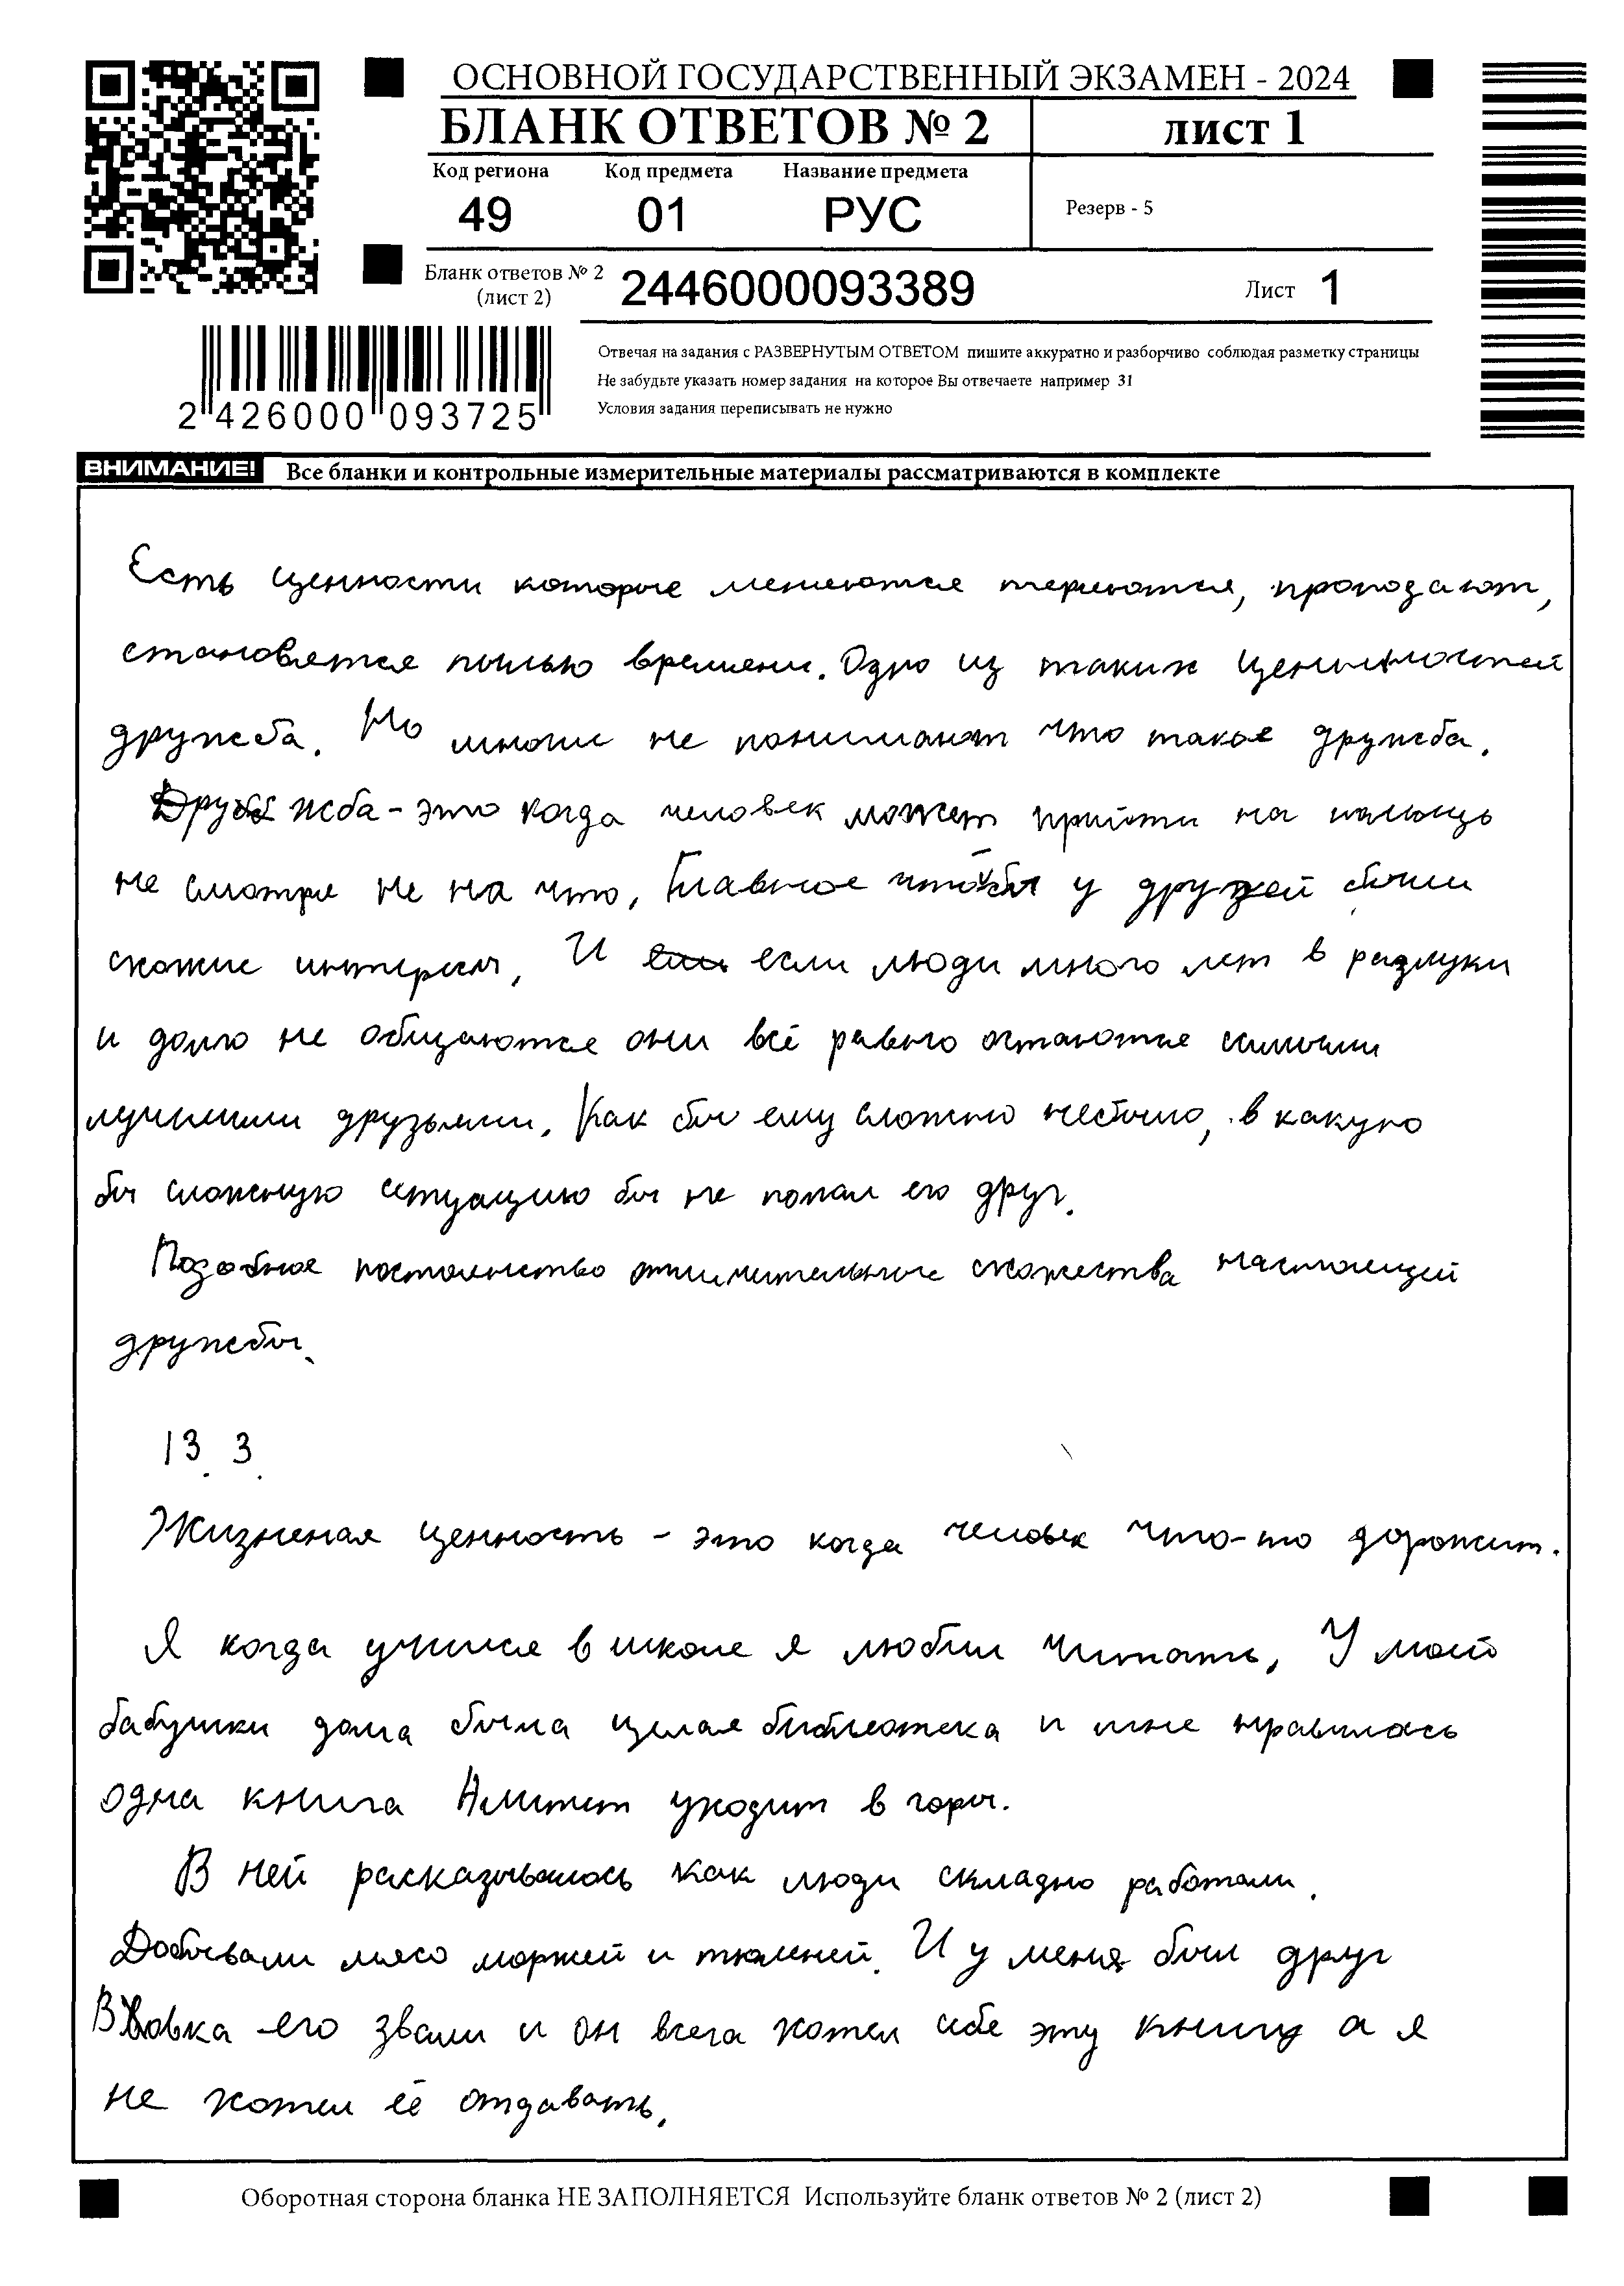 ОСНОВНОЙ ГОСУДАРСТВЕННЫЙ ЭКЗАМЕН - 2024
БЛАНК ОТВЕТОВ № 2
лист 1
Код региона Код предмета Название предмета
49 01 РУС
Резерв - 5
Бланк ответов № 2
(лист 2)
2446000093389
Лист 1
2 426000 093725
Отвечая на задания с РАЗВЕРНУТЫМ ОТВЕТОМ пишите аккуратно и разборчиво соблюдая разметку страницы
Не забудьте указать номер задания на которое Вы отвечаете например 31
Условия задания переписывать не нужно
ВНИМАНИЕ! Все бланки и контрольные измерительные материалы рассматриваются в комплекте
Есть ценности которые меняются теряются, проподают,
становятся пылью времени. Одно из таких
дружба. Но многие не понимают что такое дружба.
Дружба - это когда человек может прийти на помощь
не смотря не на что, Главное чтобы у друзей были
схожие интересы, И если люди много лет в разлуки
и долго не общаются они всё равно остаются самыми
лучшими друзьями. Как бы ему сложно небыло, в какую
бы сложную ситуацию бы не попал его друг.
Подобное постоянство отличительные настоящей
дружбы.
13. 3.
Жизненая ценность - это когда человек что-то дорожит.
Я когда учился в школе я любил читать, У моей
бабушки дома была целая библиотека и мне нравилась
одна книга Алитет уходит в горы.
В ней расказывалось как люди складно работали.
Добывали мясо моржей и тюленей. И у меня был друг
Вовка его звали и он всега хотел себе эту книгу а я
не хотел её отдавать.
Оборотная сторона бланка НЕ ЗАПОЛНЯЕТСЯ Используйте бланк ответов № 2 (лист 2)